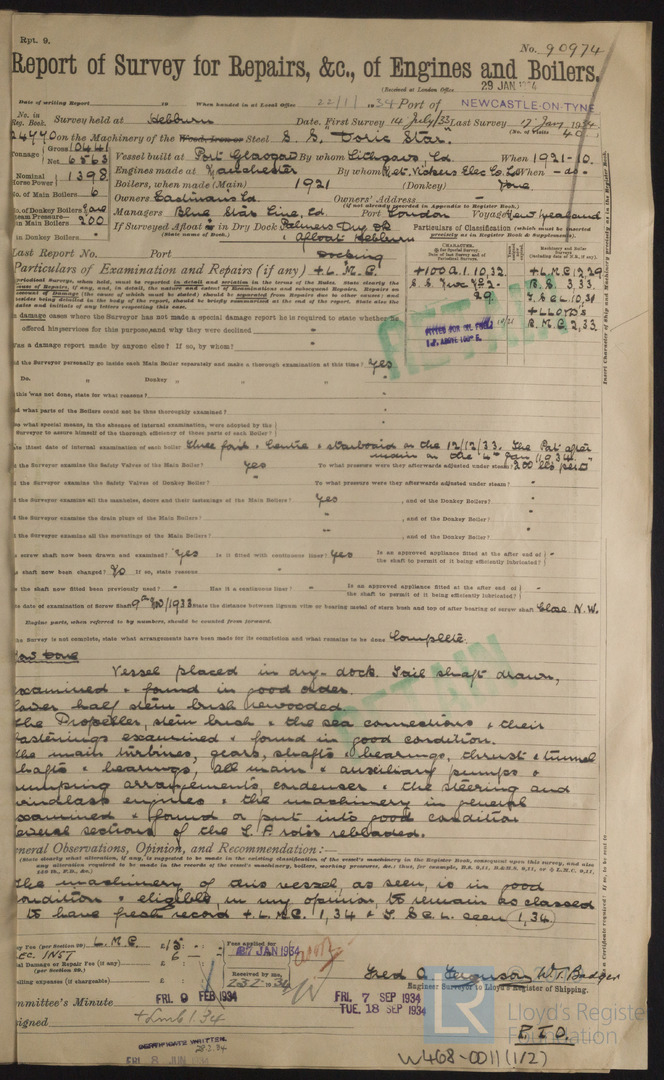 Rpt. 9.
No. 90974
Report of Survey for Repairs, &c., of Engines and Boilers.
(Received at London Office 29 JAN 1934
Date of writing Report 19 When handed in at Local Office 22/1/1934 Port of NEWCASTLE-ON-TYNE
No. in Survey held at Hebburn Date. First Survey 14 July/33 Last Survey 17 Jany 1934
Reg. Book. (No. of Visits 40)
24770 on the Machinery of the Wood, Iron or Steel S. S. "Doric Star."
Tonnage Gross 10441
Net 6563 Vessel built at Port Glasgow By whom Lithgows, Ld. When 1921-10.
Nominal Horse Power 1398 Engines made at Manchester By whom Met. Vickers Elec Co. Ld When -do-
No. of Main Boilers 6 Boilers, when made (Main) 1921 (Donkey) None
No. of Donkey Boilers None Owners Eastmans Ld. Owners' Address -
(if not already recorded in Appendix to Register Book.)
Steam Pressure in Main Boilers 200 Managers Blue Star Line, Ld. Port London Voyage New Zealand
in Donkey Boilers " If Surveyed Afloat or in Dry Dock Palmers Dry Dk & Afloat Hebburn
(State name of Dock.)
Particulars of Classification (which must be inserted precisely as in Register Book & Supplements).
Last Report No. Port Docking
Particulars of Examination and Repairs (if any) + L.M.C.
+100 A.1. 10,32
+L.M.C. 12,29
B.S. 3,33.
29
+LLOYD'S
R.M.C. 2,33
FITTED FOR OIL FUEL 10/21
F.P. ABOVE 150° F.
RETAIN
In damage cases where the Surveyor has not made a special damage report he is required to state whether he offered his services for this purpose, and why they were declined.
Was a damage report made by anyone else? If so, by whom? "
Did the Surveyor personally go inside each Main Boiler separately and make a thorough examination at this time? Yes
Do. " Donkey " " "
If this was not done, state for what reasons? "
And what parts of the Boilers could not be thus thoroughly examined? "
Also what special means, in the absence of internal examination, were adopted by the Surveyor to assure himself of the thorough efficiency of those parts of each Boiler? "
State latest date of internal examination of each boiler Three ford & Centre & starboard on the 12/12/33. The Port after main on the 4th Jan 1934. "
Did the Surveyor examine the Safety Valves of the Main Boiler? Yes To what pressure were they afterwards adjusted under steam? 200 lbs per □"
Did the Surveyor examine the Safety Valves of Donkey Boiler? " To what pressure were they afterwards adjusted under steam? "
Did the Surveyor examine all the manholes, doors and their fastenings of the Main Boilers? Yes , and of the Donkey Boilers? "
Did the Surveyor examine the drain plugs of the Main Boilers? " , and of the Donkey Boilers? "
Did the Surveyor examine all the mountings of the Main Boilers? " , and of the Donkey Boilers? "
Has screw shaft now been drawn and examined? Yes Is it fitted with continuous liner? Yes Is an approved appliance fitted at the after end of the shaft to permit of it being efficiently lubricated? -
Has shaft now been changed? No If so, state reasons "
Has the shaft now fitted been previously used? " Has it a continuous liner? " Is an approved appliance fitted at the after end of the shaft to permit of it being efficiently lubricated? "
State date of examination of Screw Shaft 9th Nov/1933 State the distance between lignum vitæ or bearing metal of stern bush and top of after bearing of screw shaft Close. N.W.
Engine parts, when referred to by numbers, should be counted from forward.
If the Survey is not complete, state what arrangements have been made for its completion and what remains to be done Complete
Now Done
Vessel placed in dry-dock. Tail shaft drawn,
examined & found in good order.
Lower half stern bush rewooded.
The Propeller, stern bush & the sea connections & their
fastenings examined & found in good condition.
The main turbines, gears, shafts & bearings, thrust & tunnel
shafts & bearings, all main & auxiliary pumps &
pumping arrangements, condenser & the steering and
windlass engines & the machinery in general
examined & found or put into good condition
Several sections of the L.P. rotor rebladed.
General Observations, Opinion, and Recommendation:—
(State clearly what alteration, if any, is suggested to be made in the existing classification of the vessel's machinery in the Register Book, consequent upon this survey, and also any alteration required to be made in the records of the vessel's machinery, boilers, working pressures, &c.; thus, for example, B.S. 9,11, B.&M.S. 9,11, or
140 lb., F.D., &c.)
The machinery of this vessel, as seen, is in good
condition & eligible, in my opinion, to remain as classed
to have fresh record + L.M.C. 1,34 & T.S. C.L. seen 1,34
Survey Fee (per Section 29) L.M.C. £ 15 : :
ELEC. INST £ 6 : - :
Special Damage or Repair Fee (if any) (per Section 29.) £ : :
Travelling expenses (if chargeable) £ : :
Fees applied for
27 JAN 1934
Received by me,
23.2.1934
Fred O. Ferguson W. T. Badger
Engineer Surveyor to Lloyd's Register of Shipping.
Committee's Minute FRI. 9 FEB 1934
FRI. 7 SEP 1934
TUE. 18 SEP 1934
Assigned + Lmb 1.34
CERTIFICATE WRITTEN
28.2.34
FRI. 8 JUN 1934
P.T.O.
LR Lloyd's Register Foundation
W468-0011 (1/2)